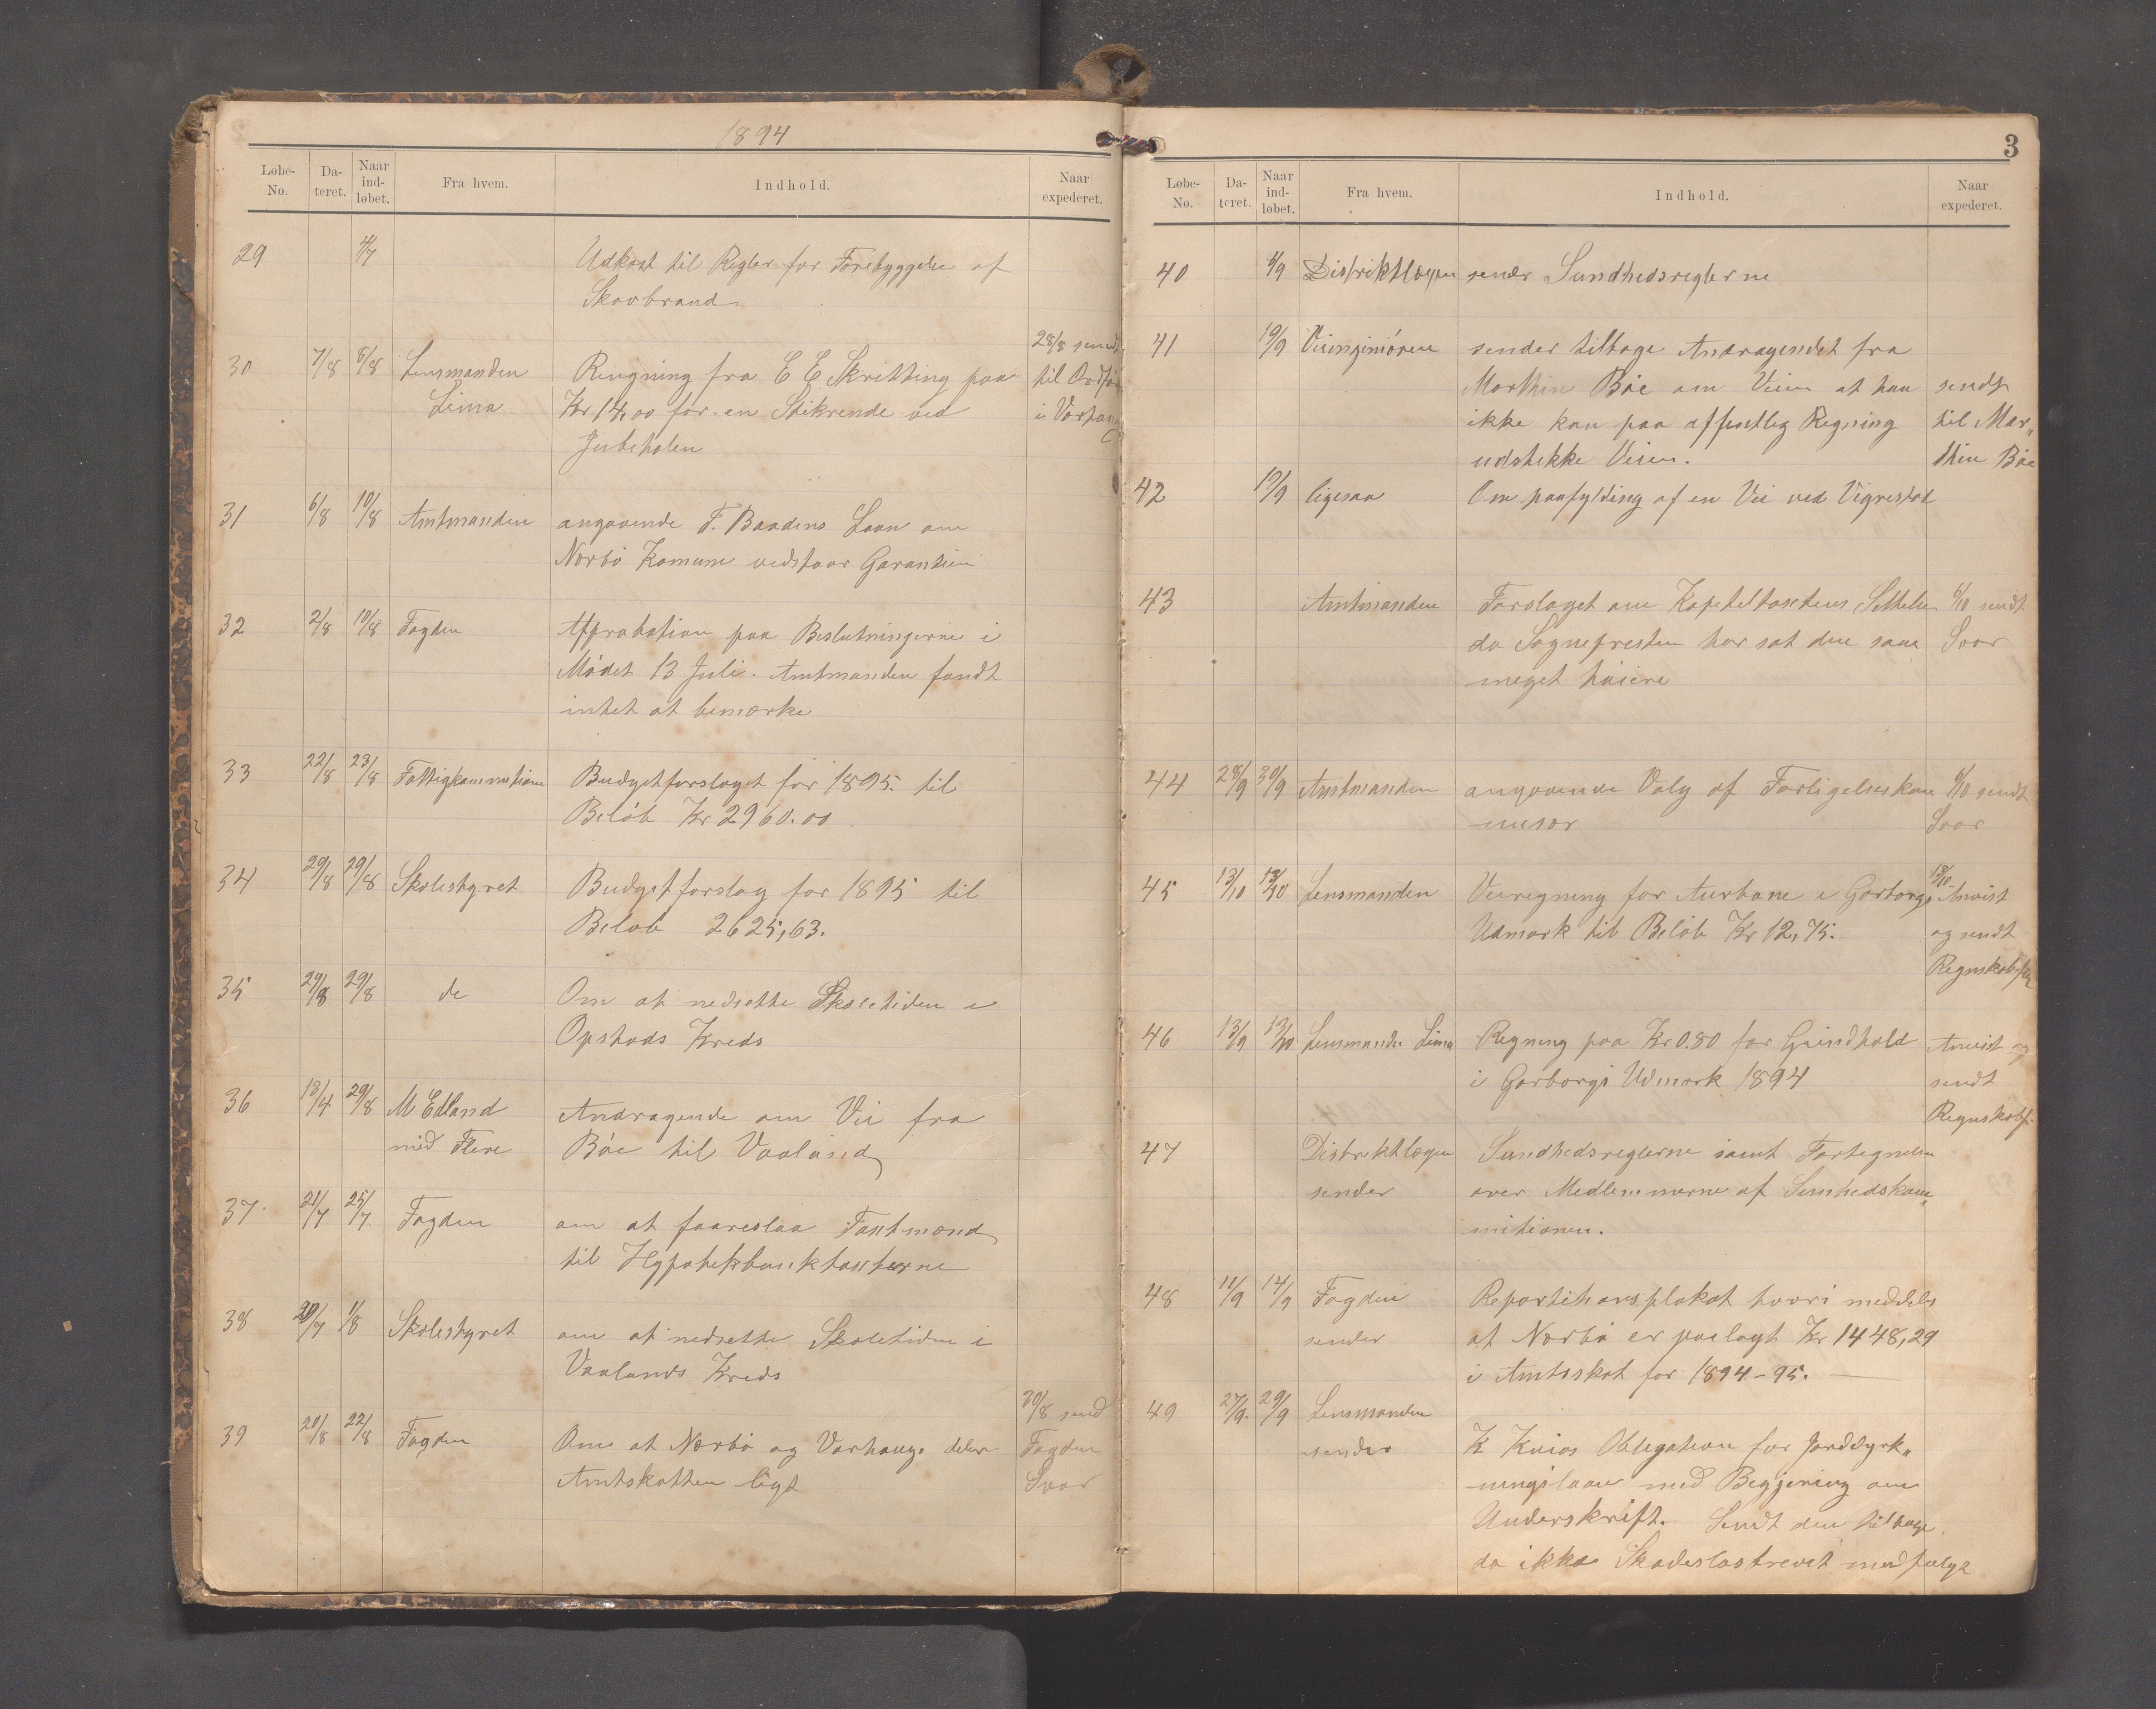 1894
Løbe-No. Da-teret. Naar ind-løbet. Fra hvem. Indhold. Naar expederet.
29 4/7 Udkast til Regler for Forebyggelse af
Skovbrand
30 7/8 8/8 Lensmanden Regning fra E E Skretting paa 28/8 sendt
Lima Kr 14,00 for en Stikrende ved til Ordfø
i Varhaug
31 6/8 10/8 Amtmanden angaaende T. Baadens Laan om
Nærbø Komune vedstaar Garantien
32 2/8 10/8 Fogden Approbation paa Beslutningerne i
Mødet 13 Juli. Amtmanden fandt
intet at bemærke
33 22/8 23/8 Fattigkommitione Budgetforslaget for 1895. til
Beløb Kr 2960.00
34 29/8 29/8 Skolestyret Budgetforslag for 1895 til
Beløb 2625,63.
35 29/8 29/8 do Om at nedsette Skoletiden i
Opstads Kreds
36 13/4 29/8 M Edland Andragende om Vei fra
med Flere Bøe til Vaaland
37 21/7 25/7 Fogden om at foareslaa Taxtmænd
til Hypotekbanktaxterne
38 20/7 1/8 Skolestyret om at nedsette Skoletiden i
Vaalands Kreds
39 20/8 22/8 Fogden Om at Nærbø og Varhaug deler
Amtskatten ligt
30/8 send
Fogden
Svar
3
Løbe-No. Da-teret. Naar ind-løbet. Fra hvem. Indhold. Naar expederet.
40 4/9 Distriktlægen sender Sundhedsreglerne
41 10/9 Veiingeniøren sender tilbage Andragendet fra
Marthin Bøe om Veien at han sendt
ikke kan paa offentlig Regning til Mar„
udstikke Veien. thin Bøe
42 10/9 ligesaa Om paafylding af en Vei ved Vigrestad
43 Amtmanden Forslaget om Kapeltaxtens Settelse 6/10 sendt
da Sognepresten har sat den saa Svar
meget høiere
44 28/9 30/9 Amtmanden angaaende Valg af Forligelseskom 6/10 sendt
misær Svar
45 13/10 13/10 Lensmanden Veiregning for Aurbane i Garborgs 13/10 Anvist
Udmark til Beløb Kr 12,75. og sendt
Regnskabsf
46 13/9 13/10 Lensmanden Lima Regning paa Kr 0.80 for Grindhold Anvist og
i Garborgs Udmark 1894 sendt
Regnskabsf.
47 Distriktlægen Sundhedsreglerne samt Fortegnelse
sender over Medlemmerne af Sunhedskom„
mitionen.
48 11/9 14/9 Fogden Repartitionsplakat hvori meddeles
sender at Nærbø er paalagt Kr 1448,29
i Amtsskat for 1894-95.
49 27/9. 29/9 Lensmanden
sender K Knios Obligation for Jorddyrk„
ningslaan med Begjering om
Underskrift. Sendt den tilbage
da ikke Skadesløsbrevet medfulgt